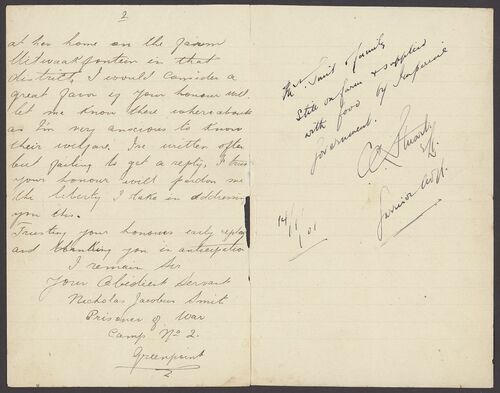 2
at her home on the farm
Uitvaakfontein in that
district, I would consider a
great favor if your honour will
let me know there whereabouts
as I'm very anxcious to know
their welfare. I've written often
but failing to get a reply, I trust
your honour will pardon me
the liberty I take in addressing
you this.
Trusting your honours early reply
and thanking you in anticipation
I remain Sir
Your Obedient Servant
Nicholas Jacobus Smit
Prisoner of War
Camp No 2.
Greenpoint
Mrs Smit & family
still on farm & supplied
with food by Imperial
Government.
14/11/01